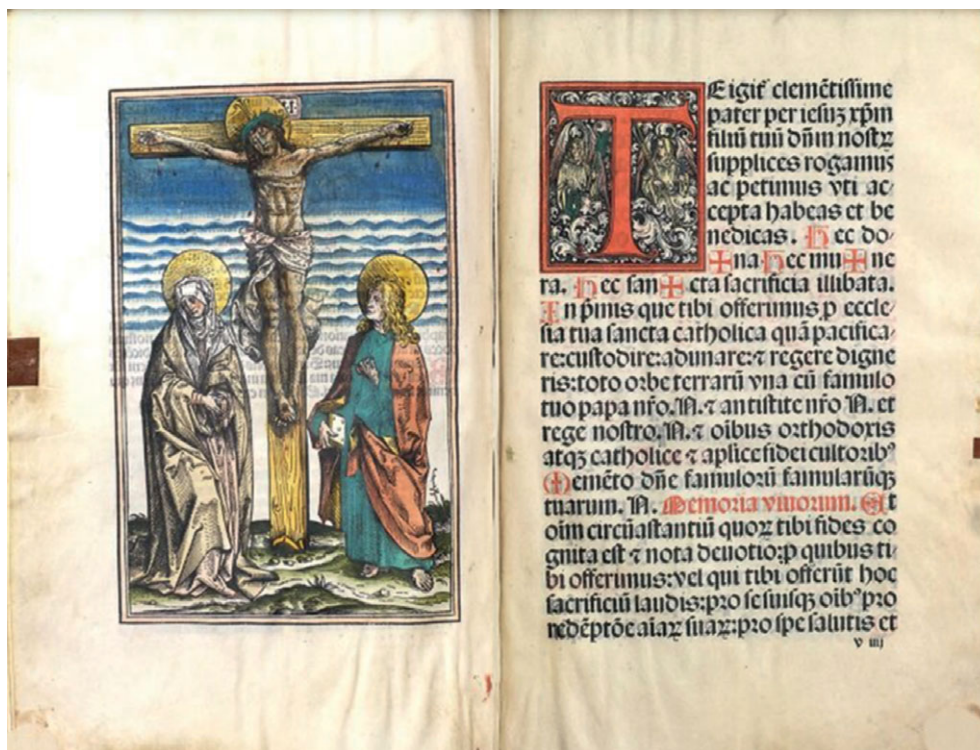 TEigit᷑ clemētissime
pater per iesuȝ xp̄m
filiū tuū dn̄m nostꝝ
supplices rogamus
ac petimus vti ac⸗
cepta habeas et be
nedicas. Hec do⸗
✠na Hec mu✠ne
ra. Hec san✠cta sacrificia illibata.
In pͥmis que tibi offerimus ꝓ eccle⸗
sia tua sancta catholica quā pacifica⸗
re:custodire:adunare:⁊ regere digne
ris:toto orbe terrarū vna cū famulo
tuo papa nr̄o.N.⁊ antistite nr̄o N. et
rege nostro.N.⁊ oībus orthodoxis
atqȝ catholice ⁊ aplīce fidei cultoribꝰ
Memēto dn̄e famulorū famularūqȝ
tuarum. N. Memoria viuorum. Et
oīm circūastantiū quoꝝ tibi fides co
gnita est ⁊ nota deuotio:ꝓ quibus ti⸗
bi offerimus:vel qui tibi offerūt hoc
sacrificiū laudis:pro se suisqȝ oibꝰ pro
redēptōe aīaꝝ suaꝝ:pro spe salutis et
v iiij